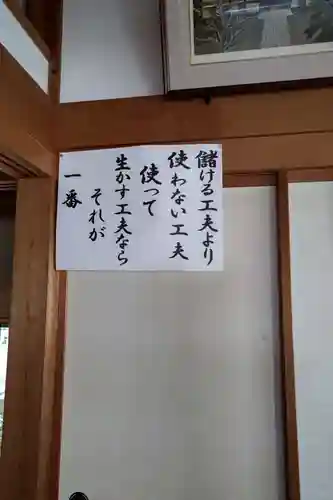 儲ける工夫より
使わない工夫
使って
生かす工夫なら
それが
一番